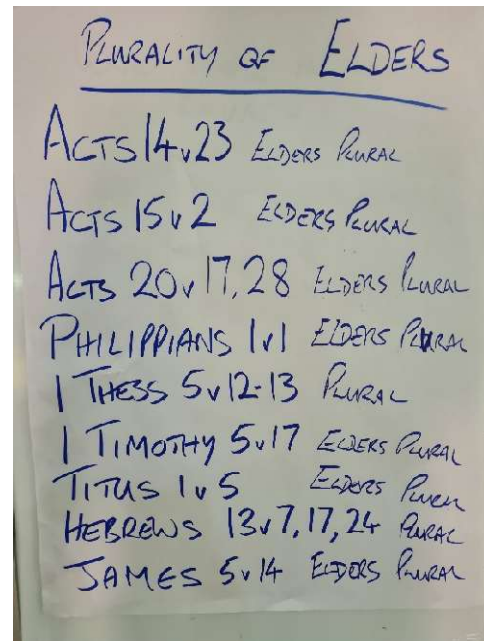 PLURALITY OF ELDERS
ACTS 14v23 ELDERS PLURAL
ACTS 15v2 ELDERS PLURAL
ACTS 20v17,28 ELDERS PLURAL
PHILIPPIANS 1v1 ELDERS PLURAL
1 THESS 5v12-13 PLURAL
1 TIMOTHY 5v17 ELDERS PLURAL
TITUS 1v5 ELDERS PLURAL
HEBREWS 13v7,17,24 PLURAL
JAMES 5v14 ELDERS PLURAL